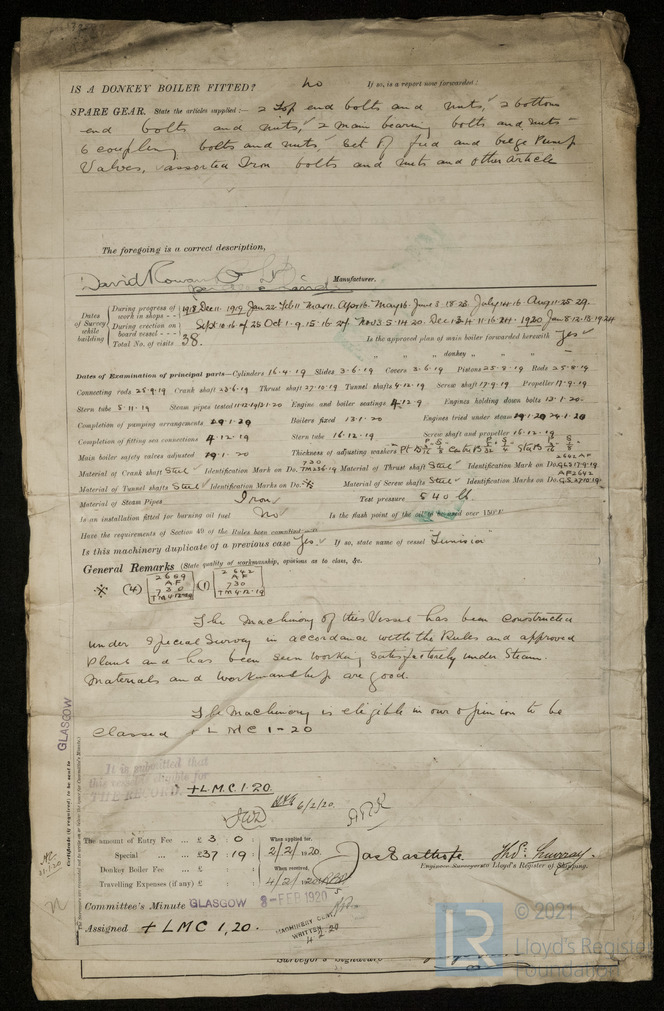 IS A DONKEY BOILER FITTED? No If so, is a report now forwarded:
SPARE GEAR. State the articles supplied:— 2 Top end bolts and nuts, 2 bottom
end bolts and nuts, 2 main bearing bolts and nuts –
6 coupling bolts and nuts, Set of feed and belge Pump
Valves, assorted Iron bolts and nuts and other article
The foregoing is a correct description,
David Rowan & Manufacturer.
Dates of Survey while building
During progress of work in shops - - 1918 Dec 11. 1919 Jan 22. Feb 11 Mar 11. Apr 16. May 16. June 3. 18. 23. July 14. 16. Aug 11. 25. 29.
During erection on board vessel - - - Sept 10. 16. 25 Oct 1. 9. 15. 16. 27. Nov 3. 5. 14. 20. Dec 11. 16. 24. 1920 Jan 8. 12. 13. 19. 24
Total No. of visits 38. Is the approved plan of main boiler forwarded herewith Yes
" " " donkey " " –
Dates of Examination of principal parts—Cylinders 16.4.19 Slides 3.6.19 Covers 3.6.19 Pistons 25.8.19 Rods 25.8.19
Connecting rods 25.9.19 Crank shaft 23.6.19 Thrust shaft 27.10.19 Tunnel shafts 4.12.19 Screw shaft 17.9.19 Propeller 17.9.19
Stern tube 5.11.19 Steam pipes tested Engine and boiler seatings 4.12.9 Engines holding down bolts 12.1.20.
Completion of pumping arrangements 29.1.20 Boilers fixed 12.1.20 Engines tried under steam 24.1.20
Completion of fitting sea connections 4.12.19 Stern tube 16.12.19 Screw shaft and propeller 16.12.19
Main boiler safety valves adjusted 29.1.20 Thickness of adjusting washers
Material of Crank shaft Steel Identification Mark on Do. 730 Material of Thrust shaft Steel Identification Mark on Do. G.S 17.9.19
Material of Tunnel shafts Steel Identification Marks on Do. ※ Material of Screw shafts Steel Identification Marks on Do. AF 2642
Material of Steam Pipes Iron Test pressure 540 lb
Is an installation fitted for burning oil fuel No Is the flash point of the oil to be used over 150°F.
Have the requirements of Section 49 of the Rules been complied with
Is this machinery duplicate of a previous case Yes If so, state name of vessel "Tunisia"
General Remarks (State quality of workmanship, opinions as to class, &c.
※ (4) 2659 AF 730 TM 4.12.19 (1) 2642 AF 730 TM 4.12.19
The Machinery of this Vessel has been constructed
under Special Survey in accordance with the Rules and approved
Plans and has been seen working satisfactorily under Steam.
Materials and workmanship are good.
The Machinery is eligible in our opinion to be
classed + L M C 1–20
GLASGOW
It is submitted that
this vessel is eligible for
THE RECORD.
+ L.M.C. 1.20.
6/2/20.
The amount of Entry Fee ... £ 3 : 0 When applied for,
Special ... ... £ 37 : 19 2/2/1920.
Donkey Boiler Fee ... £ : : When received,
Travelling Expenses (if any) £ : : 4/2/1920
Jas Easthope Thos. Murray.
Engineer Surveyors to Lloyd's Register of Shipping.
Committee's Minute GLASGOW 3-FEB 1920
Assigned + L M C 1,20.
MACHINERY CERT. WRITTEN 4.2.20
Surveyor's Signature
LR
© 2021
Lloyd's Register
Foundation